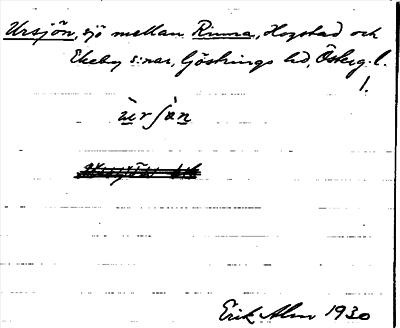 Ursjön, sjö mellan Rinna, Hogstad och
Ekeby s:nar, Göstrings hd, Österg. l.
1.
ùrʃàn
Erik Alm 1930